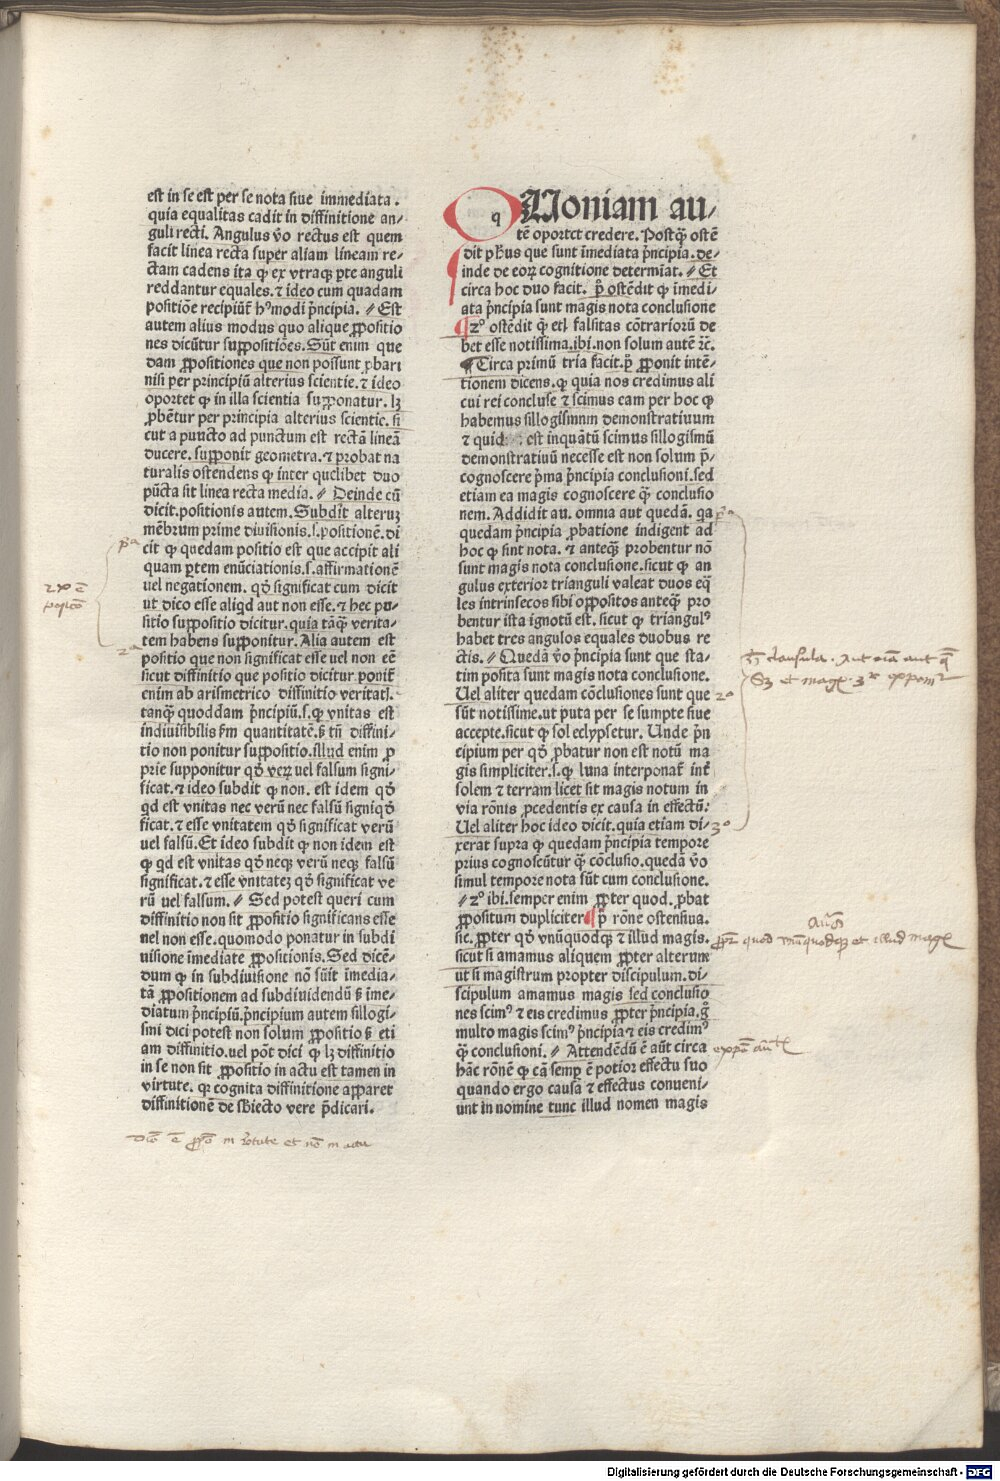 est in se est per se nota siue immediata.
quia equalitas cadit in diffinitione an⸗
guli recti. Angulus v̄o rectus est quem
facit linea recta super aliam lineam re⸗
ctam cadens ita ꝙ ex vtraqꝫ pte anguli
reddantur equales. ⁊ ideo cum quadam
positiōe recipiūt̄ hꝰmodi p̄ncipia. // Est
autem alius modus quo alique ꝓpositio
nes dicūtur suppositiōes. Sūt enim que
dam ꝓpositiones que non possunt ꝓbari
nisi per principiū alterius scientie. ⁊ ideo
oportet ꝙ in illa scientia supponatur. lꝫ
ꝓbētur per principia alterius scientie. si
cut a puncto ad punctum est rectā lineā
ducere. supponit geometra. ⁊ probat na
turalis ostendens ꝙ inter quelibet duo
pūcta sit linea recta media. // Deinde cū
dicit. positionis autem. Subdit alteruꝫ
mēbrum prime diuisionis. s. positionē. di
cit ꝙ quedam positio est que accipit ali
quam ꝑtem enūciationis. s. affirmationē
uel negationem. qď significat cum dicit
ut dico esse aliqd aut non esse. ⁊ hec po⸗
sitio suppositio dicitur. quia tāꝗ̄ verita⸗
tem habens supponitur. Alia autem est
positio que non significat esse uel non eē
sicut diffinitio que positio dicitur ponit̄
enim ab arismetrico diffinitio veritatꝭ.
tanꝗ̄ quoddam p̄ncipiū. s. ꝙ vnitas est
indiuisibilis ẜm quantitatē. ß tn̄ diffini⸗
tio non ponitur suppositio. illud enim ꝓ
prie supponitur qď verꝝ uel falsum signi⸗
ficat. ⁊ ideo subdit ꝙ non. est idem qď
qd est vnitas nec verū nec falsū signiqď
ficat. ⁊ esse vnitatem qď significat verū
uel falsū. Et ideo subdit ꝙ non idem est
ꝙ qd est vnitas qď neqꝫ verū neqꝫ falsū
significat. ⁊ esse vnitateꝫ qď significat ve
rū uel falsum. // Sed potest queri cum
diffinitio non sit ꝓpositio significans esse
nel non esse. quomodo ponatur in subdi
uisione īmediate ꝓpositionis. Sed dicē⸗
dum ꝙ in subdiuisione nō sūit īmedia⸗
tā ꝓpositionem ad subdiuidendū ß īme⸗
diatum p̄ncipiū. p̄ncipium autem sillogi⸗
smi dici potest non solum ꝓpositio ß eti
am diffinitio. uel pōt dici ꝙ lꝫ diffinitio
in se non sit ꝓpositio in actu est tamen in
virtute. qꝛ cognita diffinitione apparet
diffinitionē de sbiecto vere p̄dicari.
q QUoniam au⸗
tē oportet credere. Postꝗ̄ ostē
dit ph̄us que sunt īmediata p̄ncipia. de⸗
inde de eoꝝ cognitione determīat. // Et
circa hoc duo facit. p̊ ostēdit ꝙ imedi⸗
ata p̄ncipia sunt magis nota conclusione
¶ 2° ostēdit ꝙ etī falsitas cōtrariorū de
bet esse notissima. ibi. non solum autē ⁊c̄.
¶ Circa primū tria facit. p̊ ꝓponit intē⸗
tionem dicens. ꝙ quia nos credimus ali
cui rei concluse ⁊ scimus eam per hoc ꝙ
habemus sillogismum demonstratiuum
⁊ quid est inquātū scimus sillogismū
demonstratiuū necesse est non solum p̄⸗
cognoscere p̄ma p̄ncipia conclusioni. sed
etiam ea magis cognoscere ꝗ̄ conclusio
nem. Addidit au. omnia aut quedā. qa
quedam p̄ncipia ꝓbatione indigent ad
hoc ꝙ sint nota. ⁊ anteꝗ̄ probentur nō
sunt magis nota conclusione. sicut ꝙ an⸗
gulus exterior trianguli valeat duos eq̄
les intrinsecos sibi oppositos anteꝗ̄ pro
bentur ista ignotū est. sicut ꝙ triangulꝰ
habet tres angulos equales duobus re
ctis. // Quedā v̄o p̄ncipia sunt que sta⸗
tim posita sunt magis nota conclusione.
Uel aliter quedam cōclusiones sunt que
sūt notissime. ut puta per se sumpte siue
accepte. sicut ꝙ sol eclypsetur. Unde p̄n
cipium per qď ꝓbatur non est notū ma
gis simpliciter. s. ꝙ luna interponat̄ int̄
solem ⁊ terram licet sit magis notum in
via rōnis ꝓcedentis ex causa in effectū:
Uel aliter hoc ideo dicit. quia etiam di⸗
xerat supra ꝙ quedam p̄ncipia tempore
prius cognoscūtur ꝗ̄ cōclusio. quedā v̄o
simul tempore nota sūt cum conclusione.
// 2° ibi. semper enim ꝓpter quod. ꝓbat
ꝓpositum dupliciter ¶ p̊ rōne ostensiua.
sic. ꝓpter qď vnūquodqꝫ ⁊ illud magis.
sicut si amamus aliquem ꝓpter alterum
ut si magistrum propter discipulum. di⸗
scipulum amamus magis sed conclusio
nes scimꝰ ⁊ eis credimus ꝓpter p̄ncipia. g̊
multo magis scimꝰ p̄ncipia ⁊ eis credimꝰ
ꝗ̄ conclusioni. // Attendēdū ē aūt circa
hāc rōnē ꝙ cā semꝑ ē potior effectu suo
quando ergo causa ⁊ effectus conueni⸗
unt in nomine tunc illud nomen magis
pª
2ª
pª
2°
3°
ꝓpter quod vnūquodqꝫ et illud magꝭ
Digitalisierung gefördert durch die Deutsche Forschungsgemeinschaft - DFG